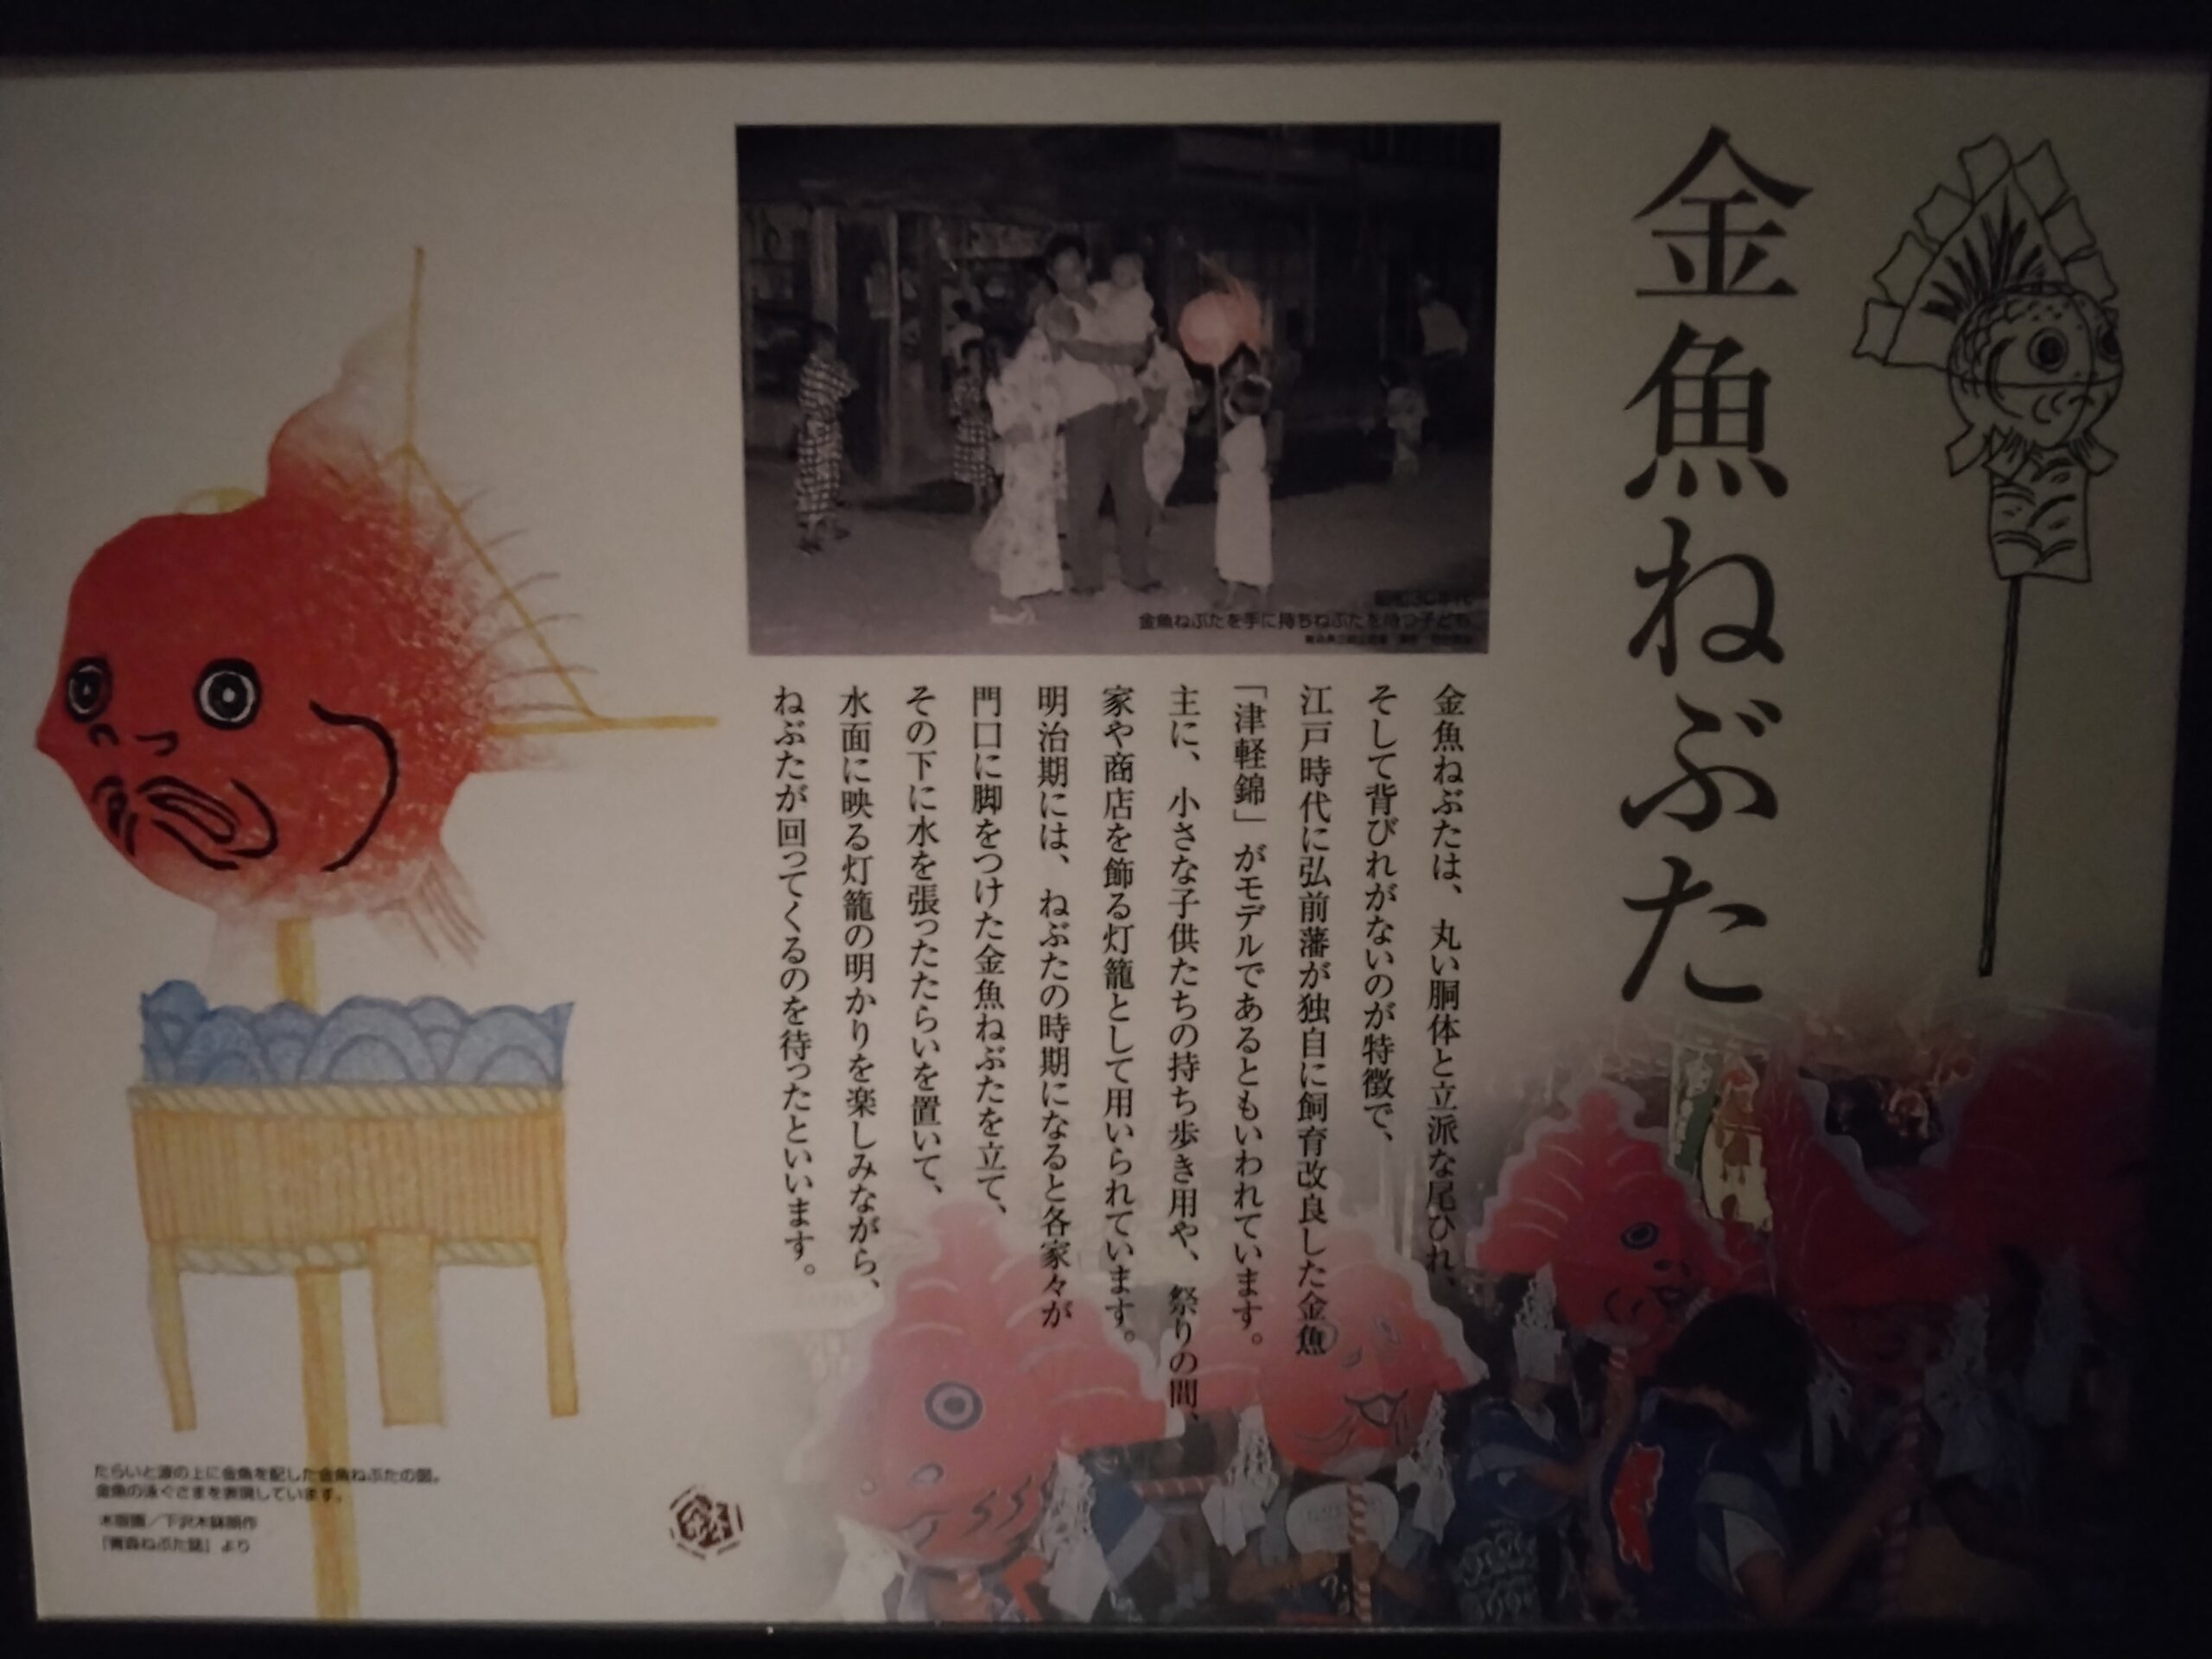 金魚ねぶた
金魚ねぶたは、丸い胴体と立派な尾ひれ、
そして背びれがないのが特徴で、
江戸時代に弘前藩が独自に飼育改良した金魚
「津軽錦」がモデルであるともいわれています。
主に、小さな子供たちの持ち歩き用や、祭りの間、
家や商店を飾る灯籠として用いられています。
明治期には、ねぶたの時期になると各家々が
門口に脚をつけた金魚ねぶたを立て、
その下に水を張ったたらいを置いて、
水面に映る灯籠の明かりを楽しみながら、
ねぶたが回ってくるのを待ったといいます。
昭和30年代
金魚ねぶたを手に持ちねぶたを待つ子ども
たらいと波の上に金魚を配した金魚ねぶたの図。
金魚の泳ぐさまを表現しています。
木版画／下沢木鉢郎作
『青森ねぶた誌』より